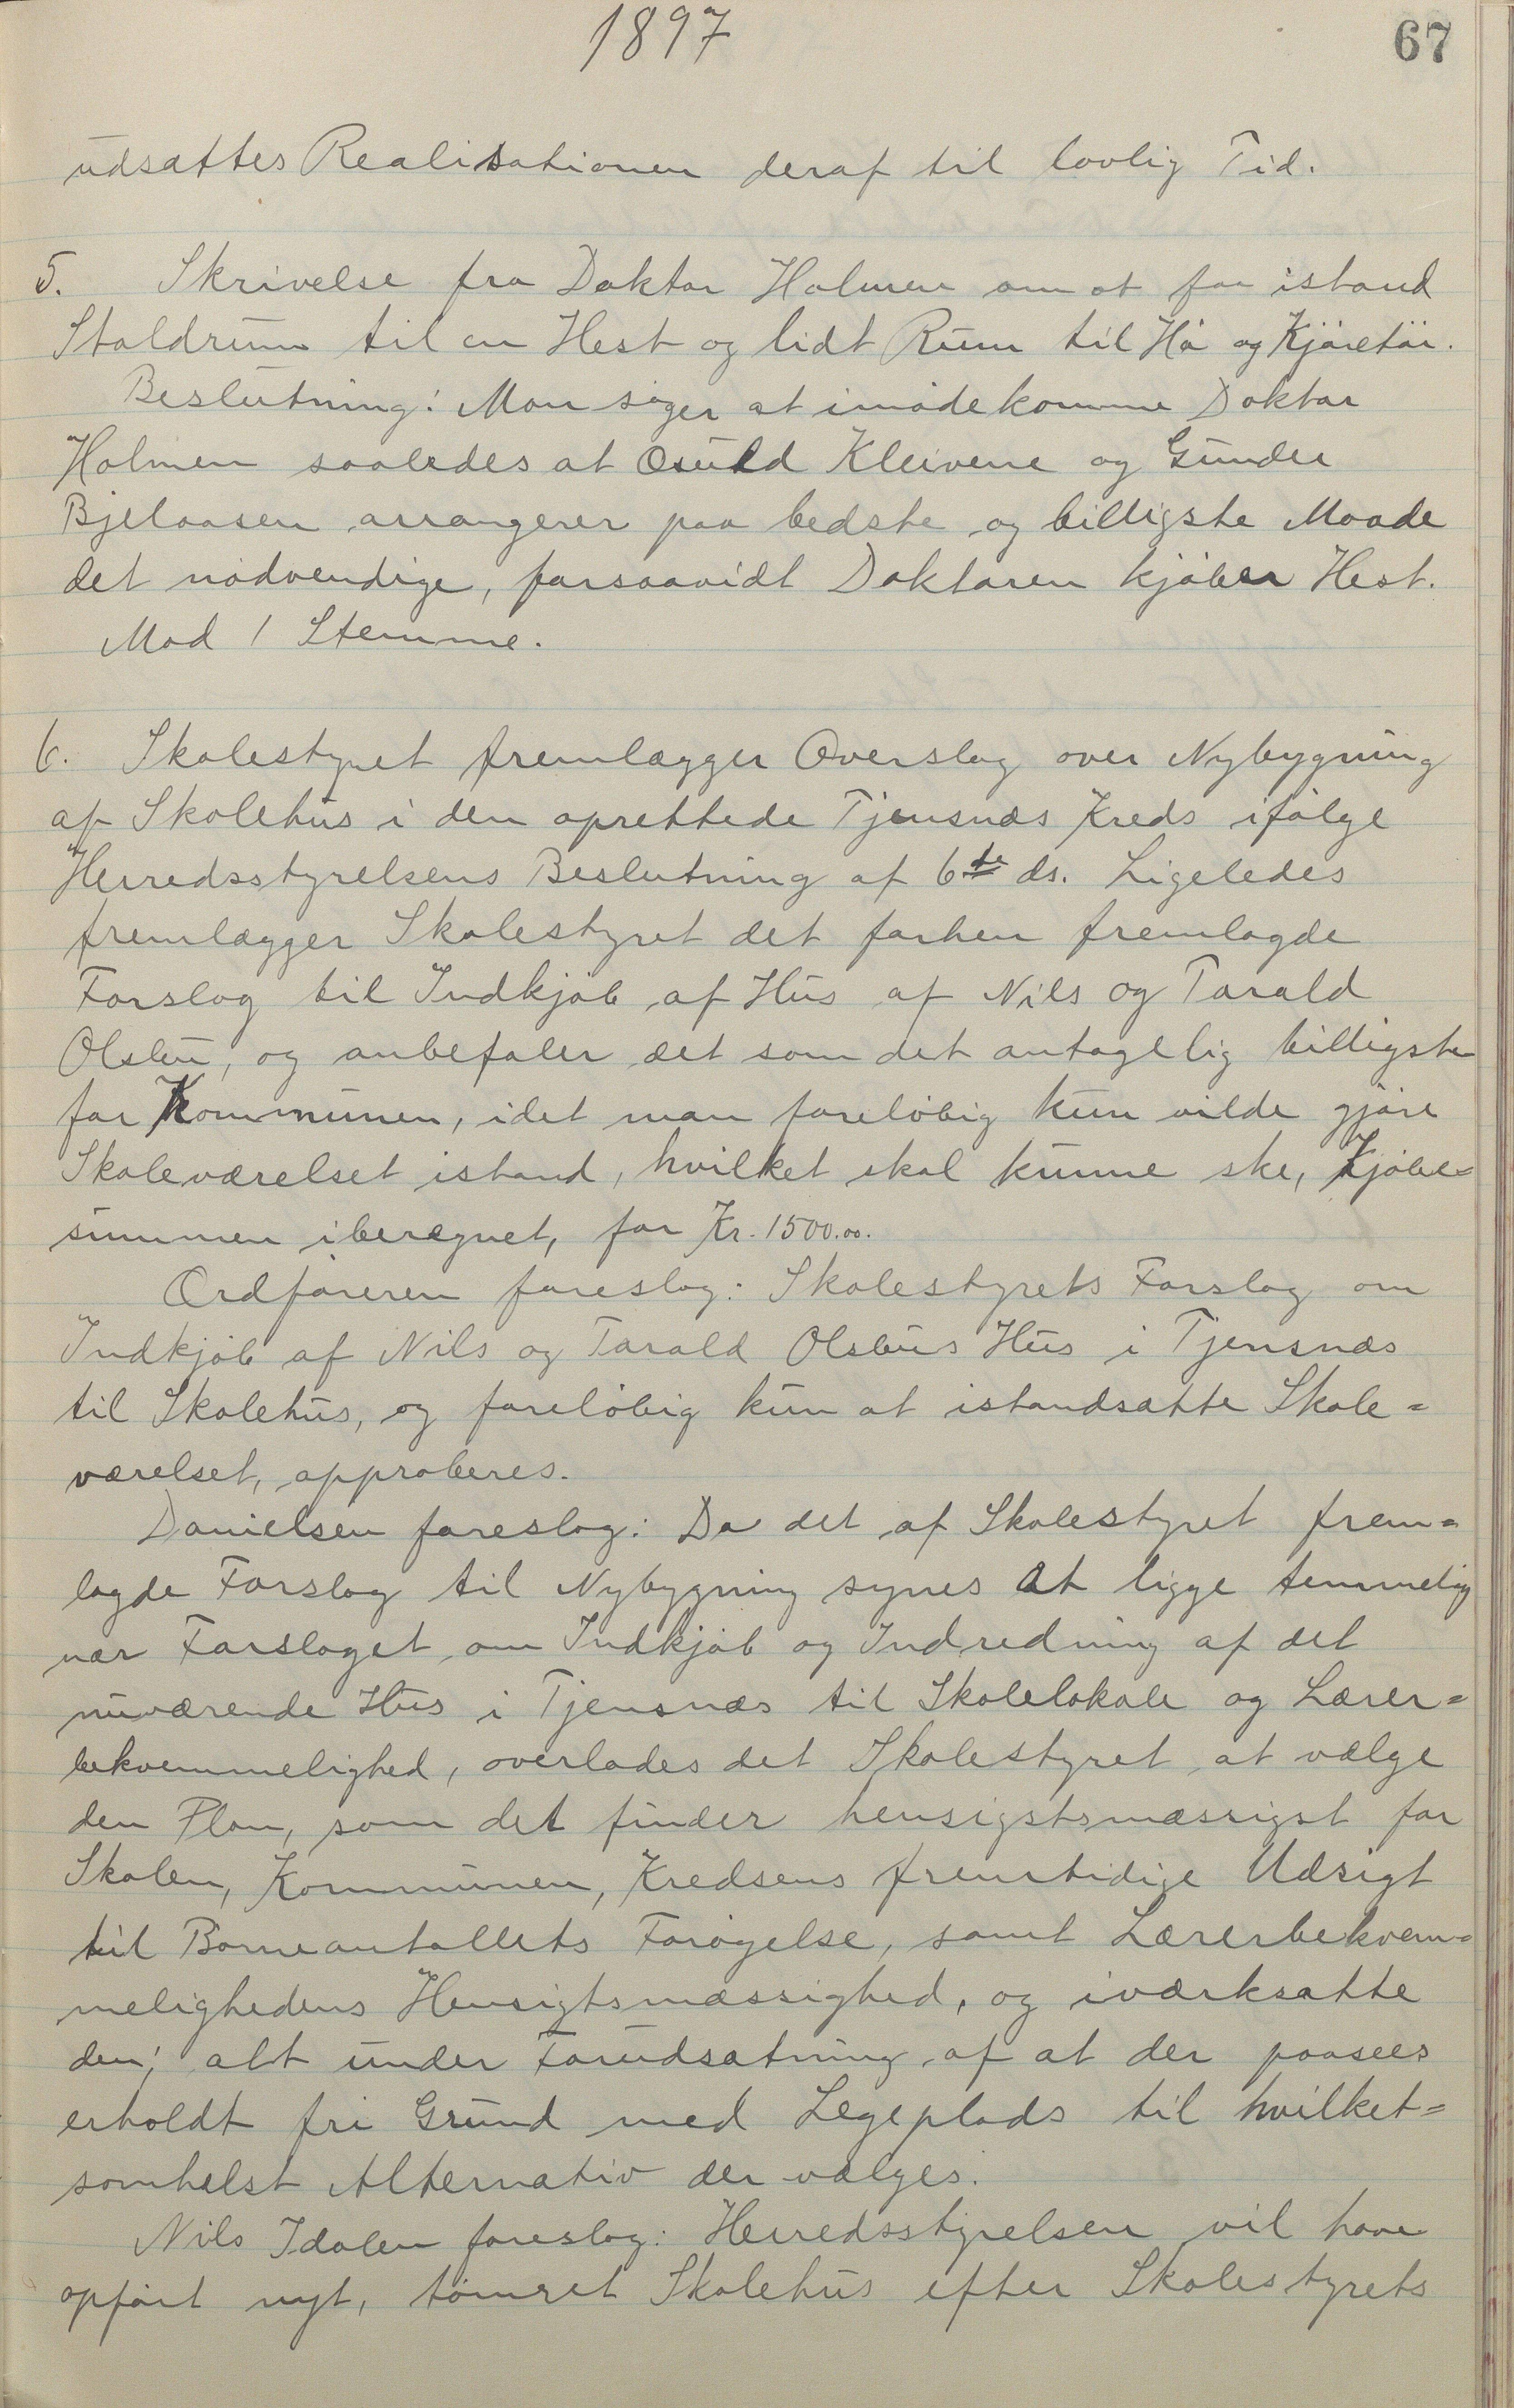 1897
67
udsattes Realisationen deraf til lovlig Tid.
5. Skrivelse fra Doktor Holmen om at faa istand
Staldrum til en Hest og lidt Rum til Hö og Kjöretöi.
Beslutning: Man söger at imödekomme Doktor
Holmen saaledes at Osuld Kleivene og Gunder
Bjelaasen arrangerer paa bedste og billigste Maade
det nödvendige, forsaavidt Doktoren kjöber Hest.
Mod 1 Stemme.
6. Skolestyret fremlægger Overslag over Nybygning
af Skolehus i den oprettede Tjensnæs Kreds ifölge
Herredsstyrelsens Beslutning af 6te ds. Ligeledes
fremlægger Skolestyret det forhen fremlagde
Forslag til Indkjöb af Hus af Nils og Tarald
Olsbu, og anbefaler det som det antagelig billigste
for Kommunen, idet man foreløbig kun vilde gjöre
Skoleværelset istand, hvilket skal kunne ske, Kjöbe=
summen iberegnet, for Kr. 1500.00.
Ordföreren foreslog: Skolestyrets Forslag om
Indkjöb af Nils og Tarald Olsbus Hus i Tjensnæs
til Skolehus, og forelöbig kun at istandsætte Skole=
værelset, approberes.
Danielsen foreslog: Da det af Skolestyret frem=
lagde Forslag til Nybygning synes at ligge temmelig
nær Forslaget om Indkjöb og Indredning af det
nuværende Hus i Tjensnæs til Skolelokale og Lærer=
bekvemmelighed, overlades det Skolestyret at vælge
den Plan, som det finder hensigstsmæssigst for
Skolen, Kommunen, Kredsens fremtidige Udsigt
til Börneantallets Forögelse, samt Lærerbekvem=
melighedens Hensigtsmæssighed, og iværksætte
den; alt under Forudsætning af at der paasees
erholdt fri Grund med Legeplads til hvilket=
somhelst Alternativ der vælges.
Nils Idalen foreslog: Herredsstyrelsen vil have
opfört nyt, tömret Skolehus efter Skolestyrets